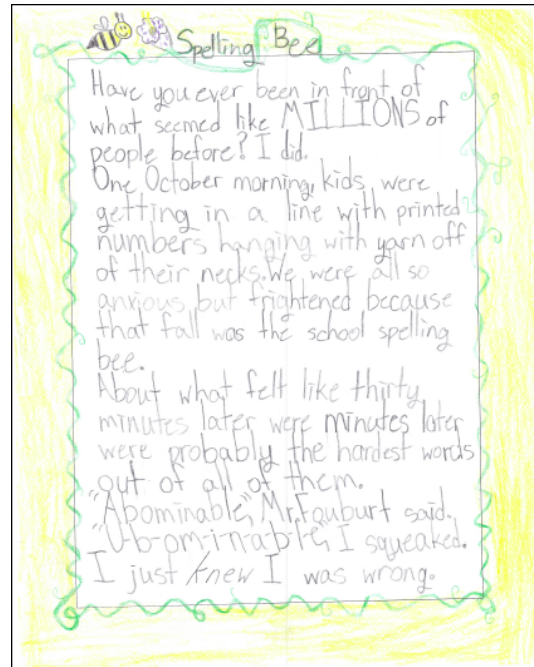 Spelling Bee
Have you ever been in front of
what seemed like MILLIONS of
people before? I did.
One October morning, kids were
getting in a line with printed
numbers hanging with yarn off
of their necks. We were all so
anxious but frightened because
that fall was the school spelling
bee.
About what felt like thirty
minutes later were minutes later
were probably the hardest words
out of all of them.
"Abominable", Mr. Fouburt said.
"U-b-om-i-n-a-b-l-e", I squeaked.
I just knew I was wrong.